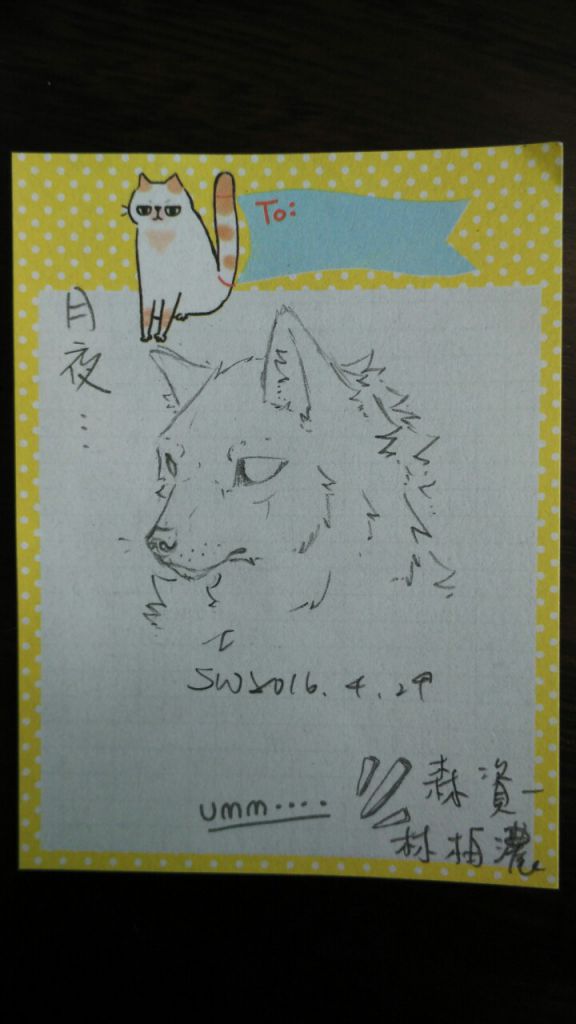 To:
月
夜
...
SW2016.4.29
umm....
森 資一
林梅濃